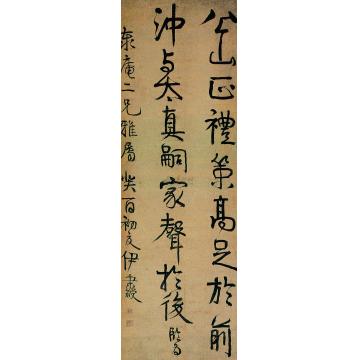 公山正禮策高足於前
沖与太真嗣家聲於後臨
庵二兄雅屬癸酉初夏伊秉綬